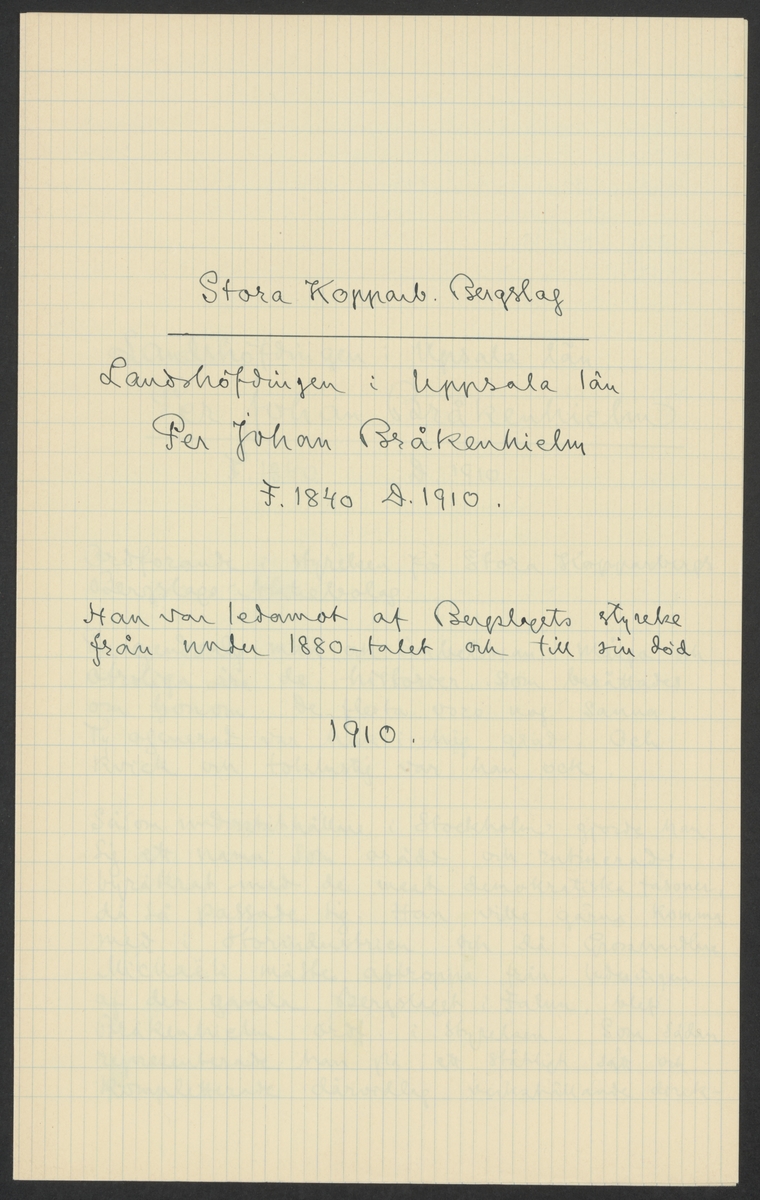 Stora Kopparb. Bergslag
Landshöfdingen i Uppsala län
Per Johan Bråkenhielm
F. 1840 D. 1910.
Han var ledamot af Bergslagets styrelse
från under 1880-talet och till sin död
1910.